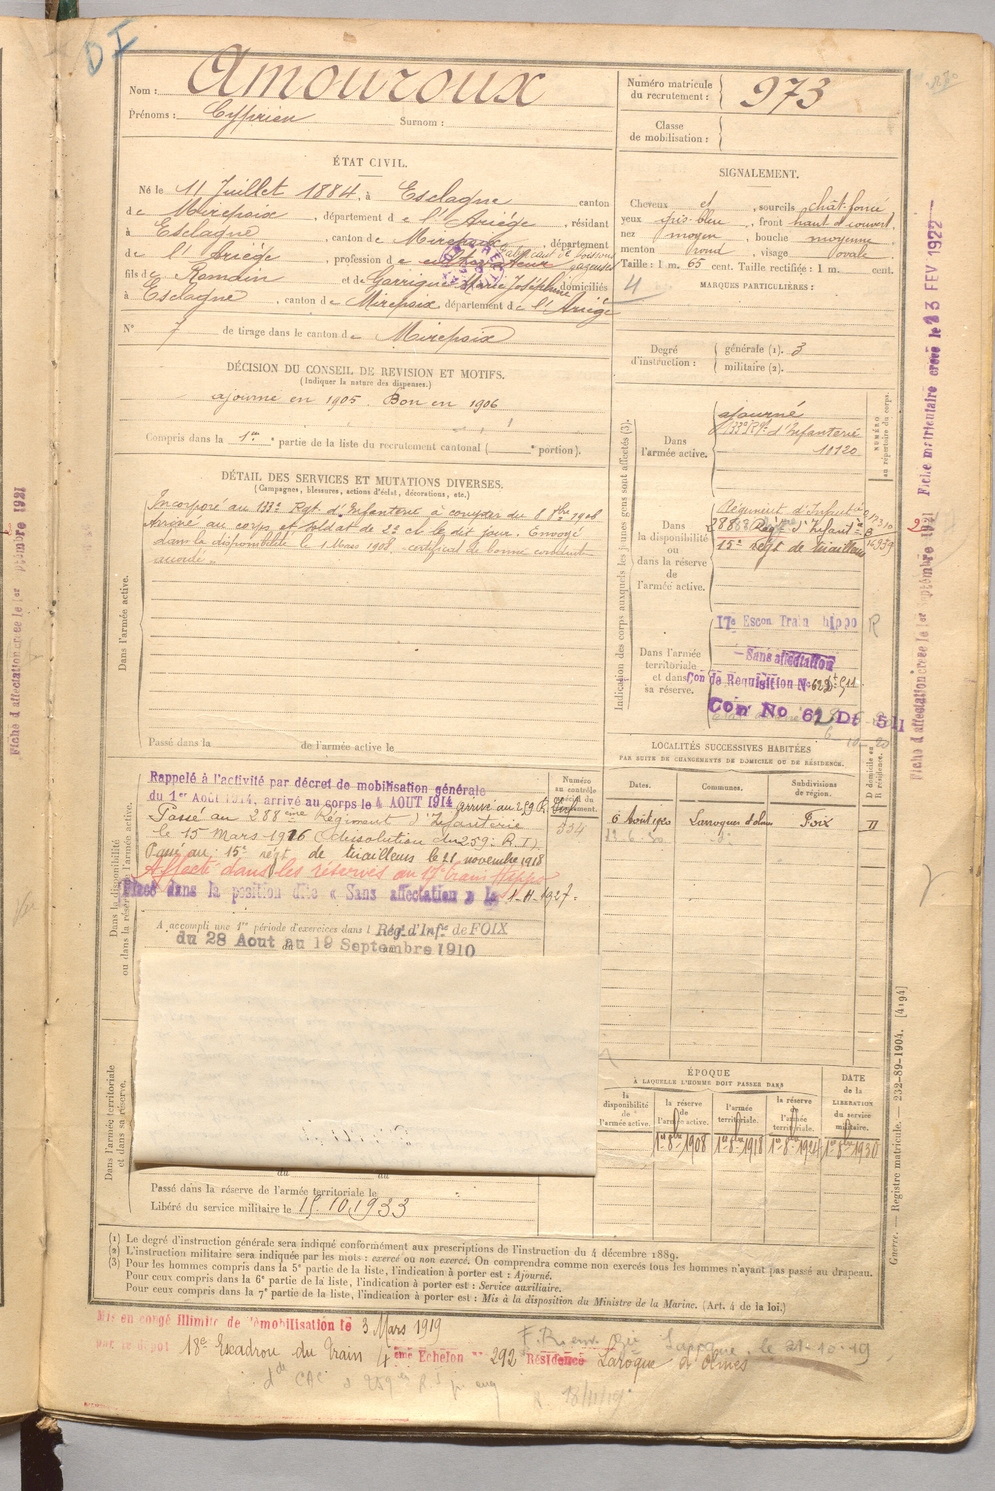 DI
Nom : Amouroux
Prénoms : Cyprien Surnom :
Numéro matricule
du recrutement : 973
Classe
de mobilisation :
ÉTAT CIVIL.
Né le 11 Juillet 1884, à Esclagne canton
de Mirepoix, département de l'Ariège, résidant
à Esclagne, canton de Mirepoix, département
de l'Ariège, profession de cultivateur
fils de Romain et de Garrigue Marie Joséphine domiciliés
à Esclagne, canton de Mirepoix département de l'Ariège
N° 7 de tirage dans le canton de Mirepoix
SIGNALEMENT.
Cheveux et, sourcils chât. foncé
yeux gris-bleu, front haut et couvert
nez moyen, bouche moyenne
menton rond, visage ovale
Taille : 1 m. 65 cent. Taille rectifiée : 1 m. cent.
MARQUES PARTICULIÈRES :
Degré
d'instruction :
générale (1). 3
militaire (2).
DÉCISION DU CONSEIL DE REVISION ET MOTIFS.
(Indiquer la nature des dispenses.)
ajourné en 1905. Bon en 1906
Compris dans la 1re partie de la liste du recrutement cantonal ( e portion).
DÉTAIL DES SERVICES ET MUTATIONS DIVERSES.
(Campagnes, blessures, actions d'éclat, décorations, etc.)
Dans l'armée active.
Incorporé au 133e Regt d'Infanterie à compter du 8 8bre 1906
Arrivé au corps et soldat de 2e cl le dit jour. Envoyé
dans la disponibilité le 1 Mars 1908, certificat de bonne conduite
accordé.
Passé dans la de l'armée active le
Indication des corps auxquels les jeunes gens sont affectés (3).
NUMÉRO
au répertoire du corps.
Dans
l'armée active.
ajourné
133e Rgt d'Infanterie
11120
Dans
la disponibilité
ou
dans la réserve
de
l'armée active.
Régiment d'Infrie
288e Regt d'Infanterie
15e Régt de tirailleurs
Dans l'armée
territoriale
et dans
sa réserve.
17e Escon Train hippo R
Sans affectation
Con de Requisition N° 62
Con No 62 Dt 511
LOCALITÉS SUCCESSIVES HABITÉES
PAR SUITE DE CHANGEMENTS DE DOMICILE OU DE RÉSIDENCE.
Dates. Communes. Subdivisions de région. D domicile ou R résidence.
6 Août 1920 Larroque d'olmes Foix D
Dans la disponibilité
ou dans la réserve de l'armée active.
Numéro
au contrôle
spécial du
recrutement.
334
Rappelé à l'activité par décret de mobilisation générale
du 1er Août 1914, arrivé au corps le 4 AOUT 1914 arrivé au 259 R. Inf
Passé au 288ème Régiment d'Infanterie
le 15 Mars 1916 (dissolution du 259e R.I)
Passé au 15e régt de tirailleurs le 21 novembre 1918
Affecté dans les réserves au 17e train hippo
Placé dans la position dite « Sans affectation » le 1-11-1927.
A accompli une 1re période d'exercices dans l Rég. d'Infie de FOIX
du 28 Aout au 19 Septembre 1910
Dans l'armée territoriale
et dans sa réserve.
du au
Passé dans la réserve de l'armée territoriale le
Libéré du service militaire le 15.10.1933
ÉPOQUE
À LAQUELLE L'HOMME DOIT PASSER DANS
DATE
de la
LIBÉRATION
du service
militaire.
la
disponibilité
de
l'armée active.
la réserve
de
l'armée active.
l'armée
territoriale.
la réserve
de
l'armée
territoriale.
1er 8bre 1908 1er 8bre 1918 1er 8bre 1924 1er 8bre 1930
(1) Le degré d'instruction générale sera indiqué conformément aux prescriptions de l'instruction du 4 décembre 1889.
(2) L'instruction militaire sera indiquée par les mots : exercé ou non exercé. On comprendra comme non exercés tous les hommes n'ayant pas passé au drapeau.
(3) Pour les hommes compris dans la 5e partie de la liste, l'indication à porter est : Ajourné.
Pour ceux compris dans la 6e partie de la liste, l'indication à porter est : Service auxiliaire.
Pour ceux compris dans la 7e partie de la liste, l'indication à porter est : Mis à la disposition du Ministre de la Marine. (Art. 4 de la loi.)
Mis en congé illimité de démobilisation le 3 Mars 1919
par le dépot 18e Escadron du Train 4ème Echelon n° 292 Résidence Laroque d'olmes
le 21-10-19
Guerre. — Registre matricule. — 232-89-1904. [4194]
Fiche d'affectation creée le 1er septembre 1921 Fiche matriculaire creée le 23 FEV 1922
Fiche d'affectation creée le 1er septembre 1921